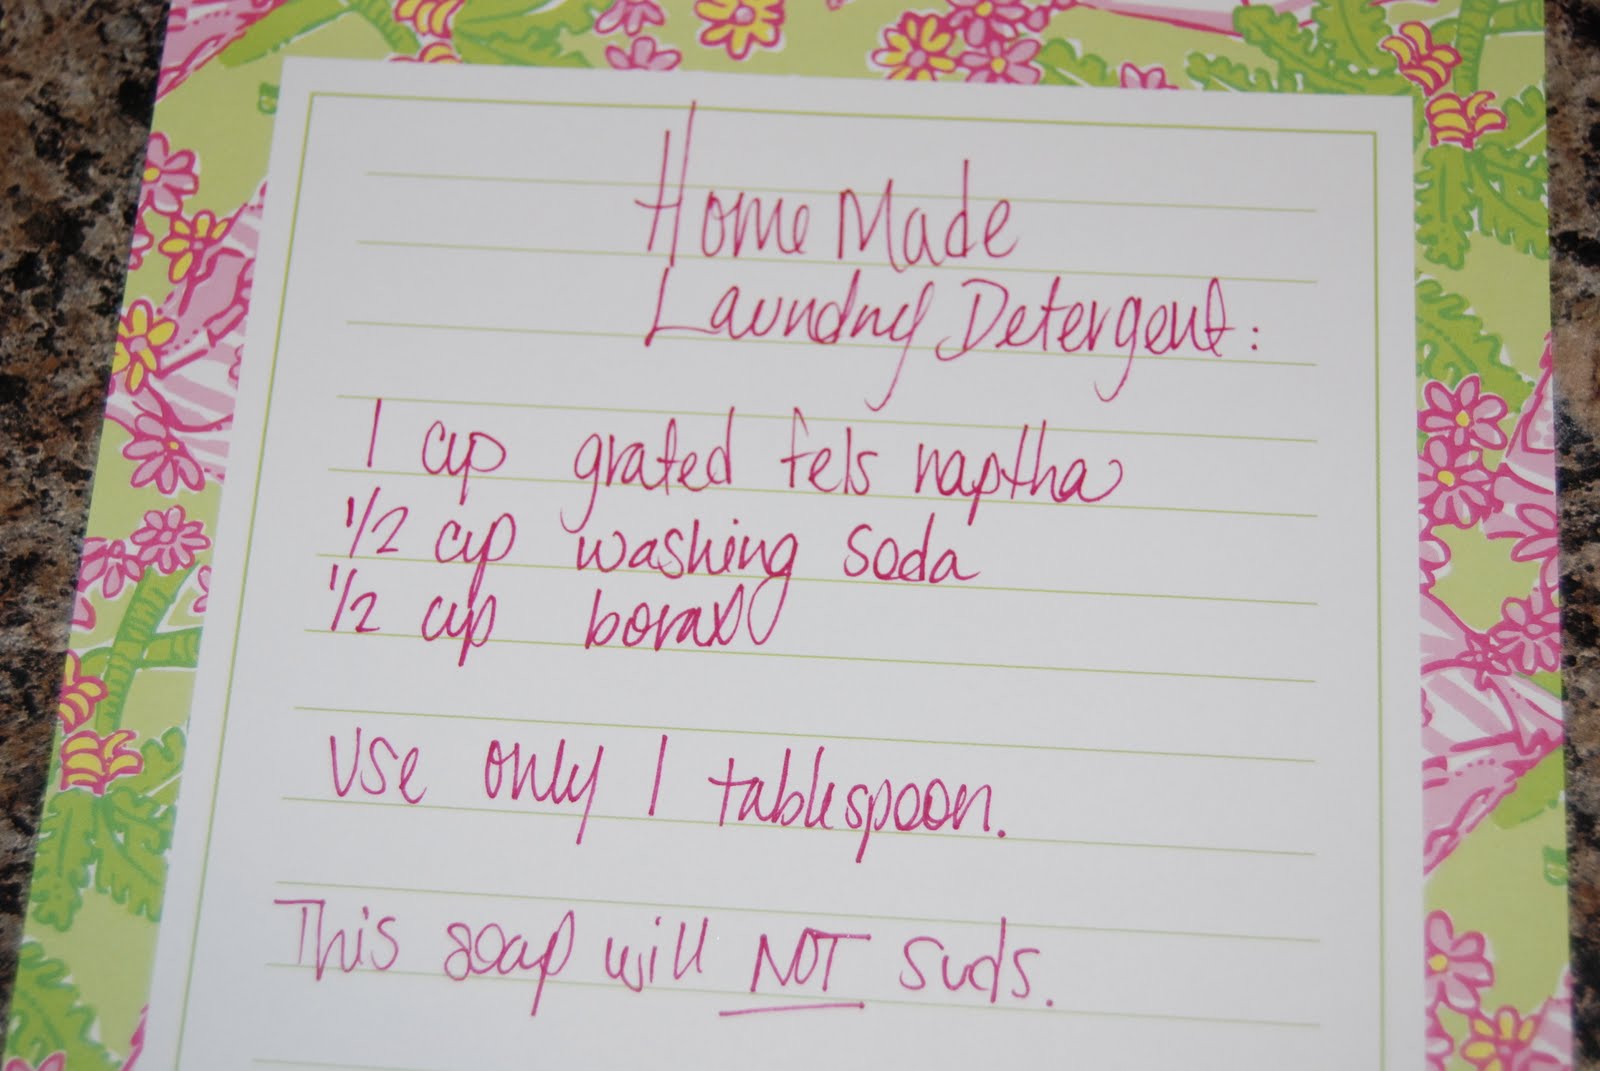 Home Made
Laundry Detergent:
1 cup grated fels naptha
1/2 cup washing soda
1/2 cup borax
Use only 1 tablespoon.
This soap will NOT suds.